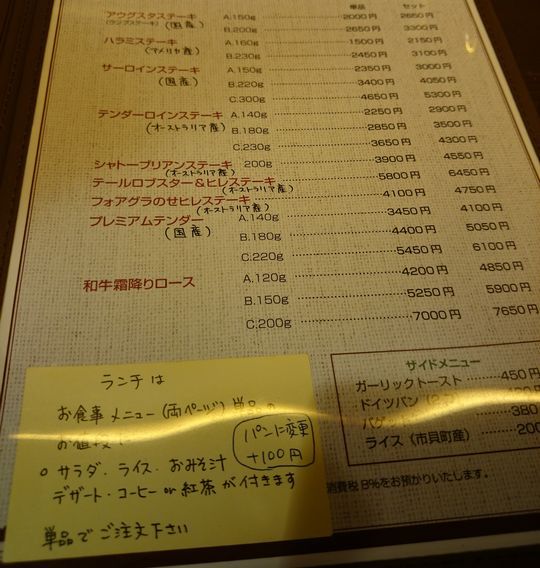 単品 セット
アウグスタステーキ A.150g 2000円 2650円
(ランプステーキ) (国産) B.200g 2650円 3300円
ハラミステーキ A.160g 1500円 2150円
(アメリカ産) B.230g 2450円 3100円
サーロインステーキ A.150g 2350円 3000円
(国産) B.220g 3400円 4050円
C.300g 4650円 5300円
テンダーロインステーキ A.140g 2250円 2900円
(オーストラリア産) B.180g 2850円 3500円
C.230g 3650円 4300円
シャトーブリアンステーキ 200g 3900円 4550円
(オーストラリア産)
テールロブスター&ヒレステーキ 5800円 6450円
(オーストラリア産)
フォアグラのせヒレステーキ 4100円 4750円
(オーストラリア産)
プレミアムテンダー A.140g 3450円 4100円
(国産) B.180g 4400円 5050円
C.220g 5450円 6100円
和牛霜降りロース A.120g 4200円 4850円
B.150g 5250円 5900円
C.200g 7000円 7650円
サイドメニュー
ガーリックトースト 450円
ドイツパン
バゲット 380
ライス(市貝町産) 200
消費税8%をお預かりいたします。
ランチは
お食事メニュー(両ページ)単品の
お値段で
○サラダ、ライス、おみそ汁
デザート・コーヒー or 紅茶が付きます
パンに変更
+100円
単品でご注文下さい